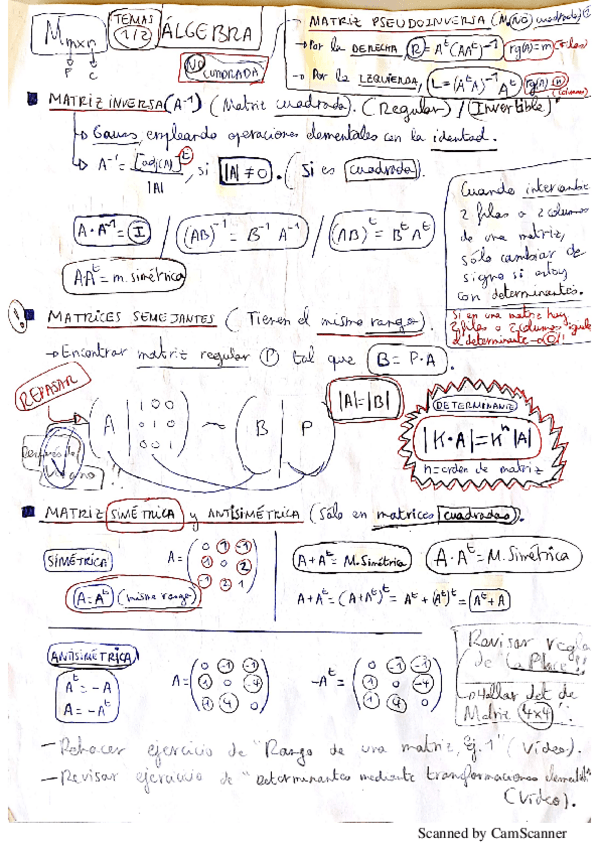 M mxn
F C
TEMAS 1/2
ÁLGEBRA
NO CUADRADA
- MATRIZ PSEUDOINVERSA (M. NO cuadrada)
→ Por la DERECHA, R = Aᵗ(AAᵗ)⁻¹ rg(A)=m
- Por la IZQUIERDA, L = (AᵗA)⁻¹ Aᵗ rg(A)
MATRIZ INVERSA (A⁻¹) (Matriz cuadrada). (Regular) / (Invertible)
↳ Gauss, empleando operaciones elementales con la identidad.
↳ A⁻¹ = [adj(A)]ᵗ / |A|, si |A| ≠ 0. (Si es cuadrada).
A · A⁻¹ = I / (AB)⁻¹ = B⁻¹ A⁻¹ / (AB)ᵗ = Bᵗ Aᵗ
AAᵗ = m. simétrica
Cuando intercambie
2 filas o 2 columnas
de una matriz,
sólo cambiar de
signo si estoy
con determinantes.
Si en una matriz hay
2 filas o 2 columnas iguales
el determinante → 0!!
! MATRICES SEMEJANTES (Tienen el mismo rango).
→ Encontrar matriz regular P tal que B = P·A.
REPASAR
( A | 1 0 0
0 1 0
0 0 1 ) ~ ( B | P )
|A|=|B|
DETERMINANTE
|K·A|=Kⁿ|A|
n=orden de matriz
MATRIZ SIMÉTRICA y ANTISIMÉTRICA (Sólo en matrices cuadradas).
SIMÉTRICA
A = ( 0 1 -1
1 0 2
-1 2 1 )
A=Aᵗ (mismo rango)
A+Aᵗ = M. Simétrica
A·Aᵗ = M. Simétrica
A+Aᵗ = (A+Aᵗ)ᵗ = Aᵗ + (Aᵗ)ᵗ = Aᵗ+A
ANTISIMÉTRICA
Aᵗ = -A
A = -Aᵗ
A = ( 0 -1 -1
1 0 -4
1 4 0 )
-Aᵗ = ( 0 -1 -1
1 0 -4
1 4 0 )
Revisar regla
de La Place!!
→ Hallar det de
Matriz 4x4
- Rehacer ejercicio de "Rango de una matriz, Ej. 1" (Vídeo).
- Revisar ejercicio de "Determinantes mediante transformaciones elementales"
(Vídeo).
Scanned by CamScanner